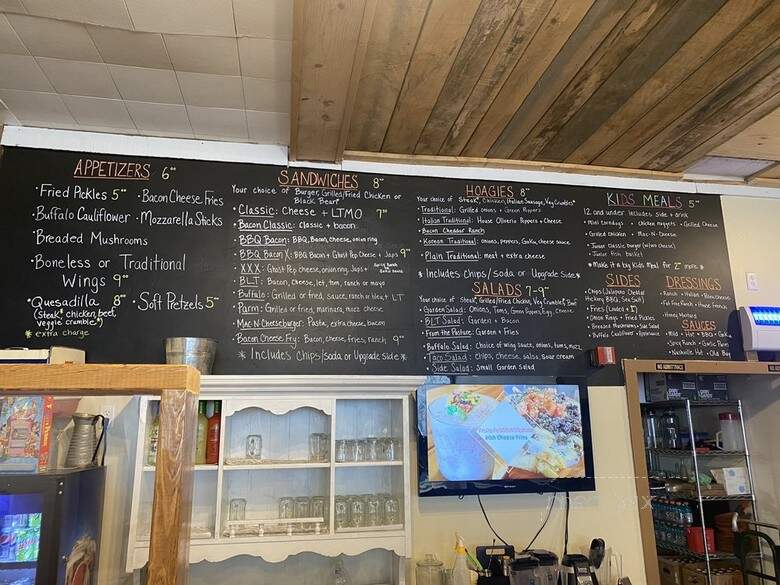 APPETIZERS 6⁰⁰
· Fried Pickles 5⁰⁰ · Bacon Cheese Fries
· Buffalo Cauliflower · Mozzarella Sticks
· Breaded Mushrooms
· Boneless or Traditional
Wings 9⁰⁰
· Quesadilla 8⁰⁰ · Soft Pretzels 5⁰⁰
(steak* chicken, beef,
veggie crumble*)
* extra charge
SANDWICHES 8⁰⁰
Your choice of Burger, Grilled/Fried Chicken or
Black Bean*
· Classic: Cheese + LTMO 7⁰⁰
· Bacon Classic: Classic + bacon
· BBQ Bacon: BBQ, Bacon, cheese, onion ring
· BBQ Bacon X: BBQ, Bacon + Ghost Pep Cheese + Japs 9⁰⁰
· XXX: Ghost Pep cheese, onion ring, Japs +
· BLT: Bacon, cheese, let, tom, ranch or mayo
· Buffalo: Grilled or fried, sauce, ranch or bleu + LT
· Parm: Grilled or fried, marinara, mozz cheese
· Mac N Cheeseburger: Pasta, extra cheese, bacon
· Bacon Cheese Fry: Bacon, cheese, fries, ranch 9⁰⁰
* Includes Chips/soda or Upgrade Side *
HOAGIES 8⁰⁰
Your choice of Steak*, Chicken, Italian Sausage, Veg Crumbles*
· Traditional: Grilled onions + Green Peppers
· Italian Traditional: House Oliverio Peppers + Cheese
· Bacon Cheddar Ranch
· Korean Traditional: onions, peppers, GoKu, cheese sauce
· Plain Traditional: meat + extra cheese
* Includes chips/soda or Upgrade Side *
SALADS 7-9⁰⁰
Your choice of Steak*, Grilled/Fried Chicken, Veg Crumbles*, Beef
· Garden Salad: Onions, Toms, Green Peppers, Egg, Cheese
· BLT Salad: Garden + Bacon
· From the Pasture: Garden + Fries
· Buffalo Salad: Choice of wing sauce, onions, toms, mozz
· Taco Salad: chips, cheese, salsa, sour cream
· Side Salad: Small Garden Salad
KIDS MEALS 5⁰⁰
12 and under includes side + drink
· Mini Corndogs · Chicken Nuggets · Grilled Cheese
· Grilled Chicken · Mac-N-Cheese
· Junior Classic burger (w/wo cheese)
· Junior fish basket
* Make it a big Kids Meal for 2⁰⁰ more *
SIDES
· Chips (Jalapeno Cheddar
Hickory BBQ, Sea Salt)
· Fries
· Onion Rings · Fried Pickles
· Breaded Mushrooms · Side Salad
· Buffalo Cauliflower · Applesauce
DRESSINGS
· Ranch · Italian · Bleu Cheese
· Fat Free Ranch · French
· Honey Mustard
SAUCES
· Mild · Hot · BBQ · GoKu
· Spicy Ranch · Garlic Parm
· Nashville Hot · Old Bay
Irish Cheese Fries
NO ADMITTANCE
NO ADMITTANCE